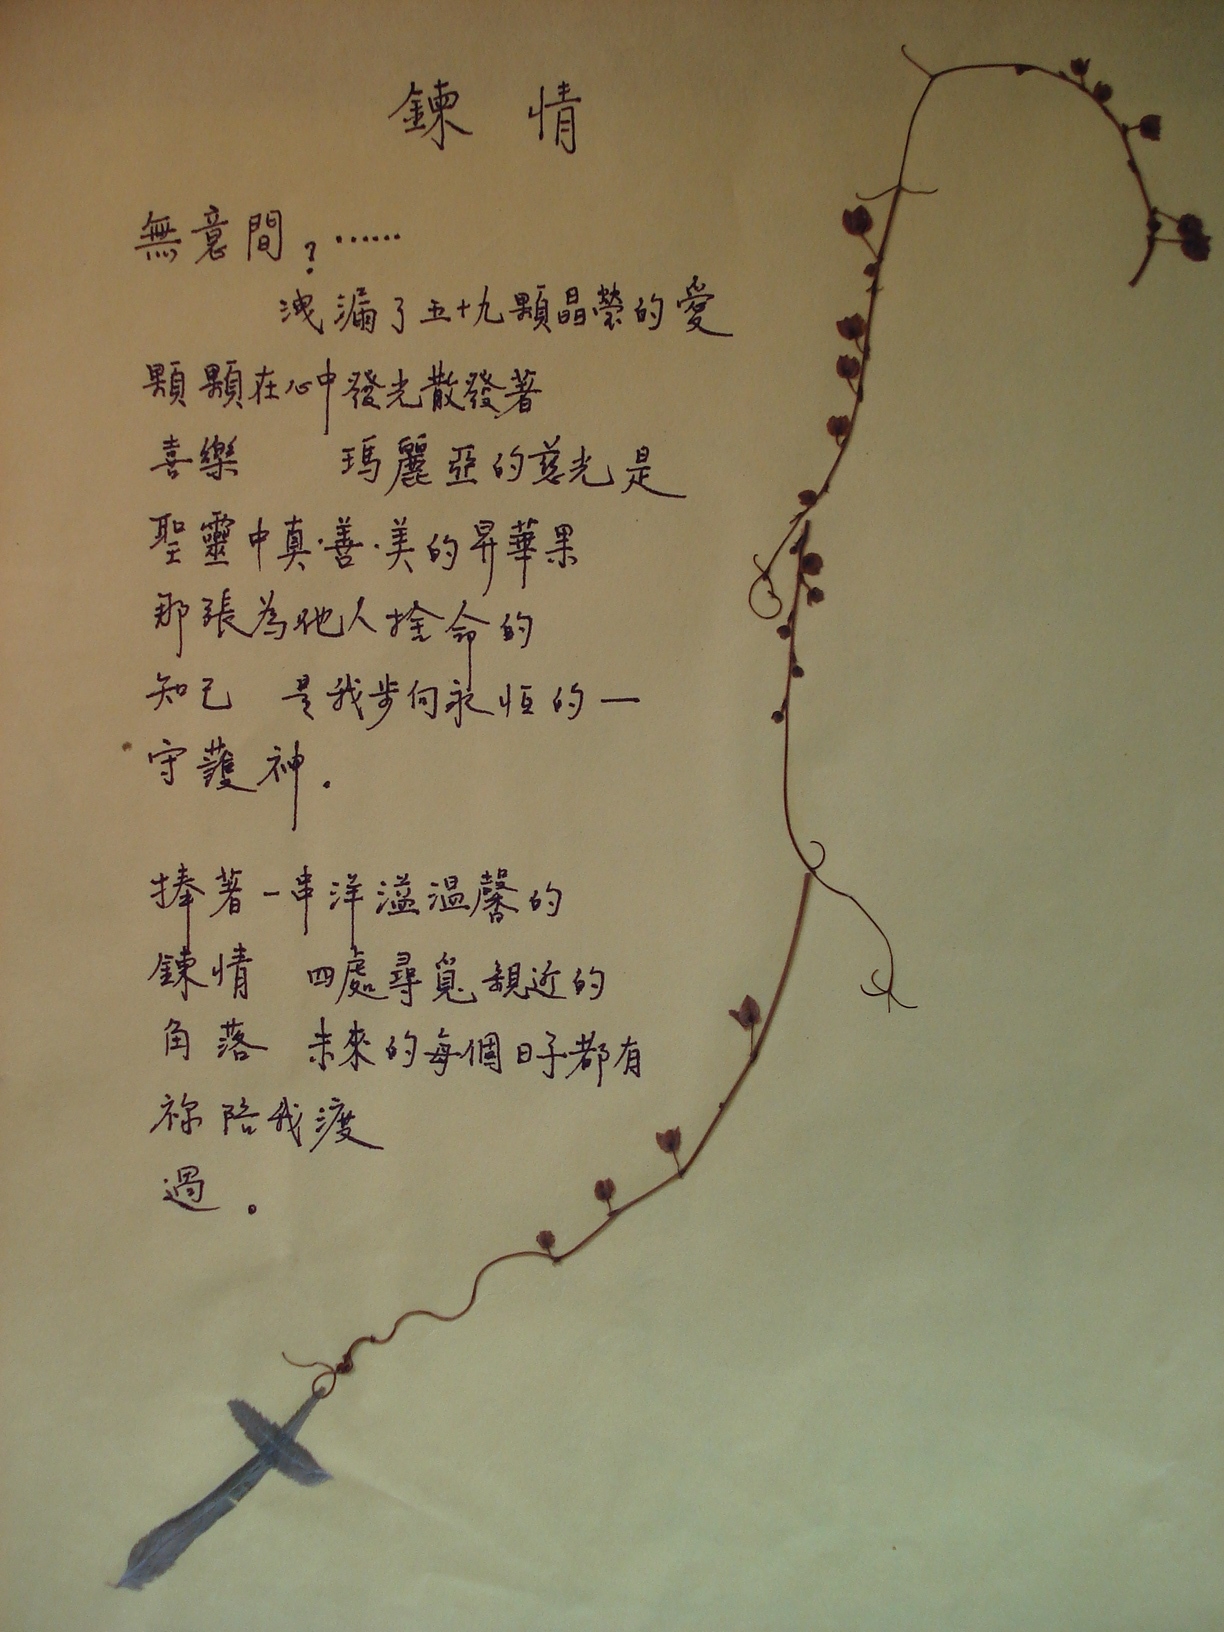 鍊情
無意間?……
洩漏了五十九顆晶瑩的愛
顆顆在心中發光散發著
喜樂 瑪麗亞的慈光是
聖靈中真·善·美的昇華果
那張為牠人捨命的
知己 是我步向永恒的一
守護神.
捧著一串洋溢温馨的
鍊情 四處尋覓親近的
角落 未來的每個日子都有
祢陪我渡
過。